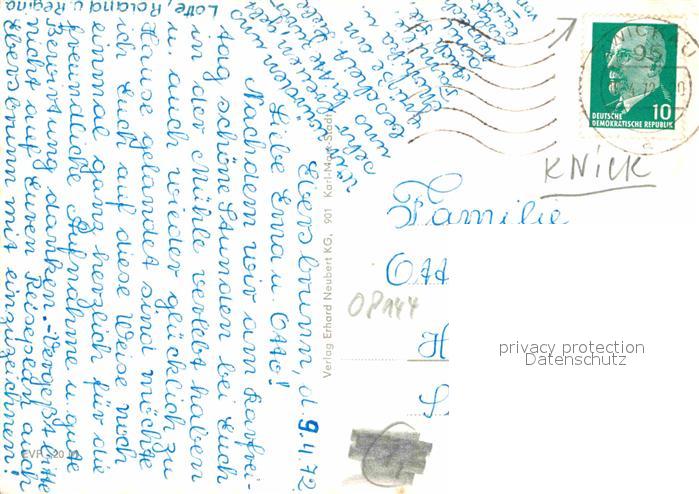 Ebersbrunn, d. 9.4.72
Liebe Erna u. Otto!
Nachdem wir am Karfrei-
tag schöne Stunden bei Euch
in der Mühle verlebt haben
u. auch wieder glücklich zu
Hause gelandet sind möchte
ich Euch auf diese Weise noch
einmal ganz herzlich für die
freundliche Aufnahme u. gute
Bewirtung danken. - Vergeßt bitte
nicht auf Euren Reiseplan auch
Ebersbrunn mit einzuzeichnen!
wir würden uns
sehr
und
Lotte, Roland u. Regina
Verlag Erhard Neubert KG, 901 Karl-Marx-Stadt
EVP -,20 M
DEUTSCHE
DEMOKRATISCHE REPUBLIK
10
95
KNICK
Familie
Ott
H
S
08144
privacy protection
Datenschutz